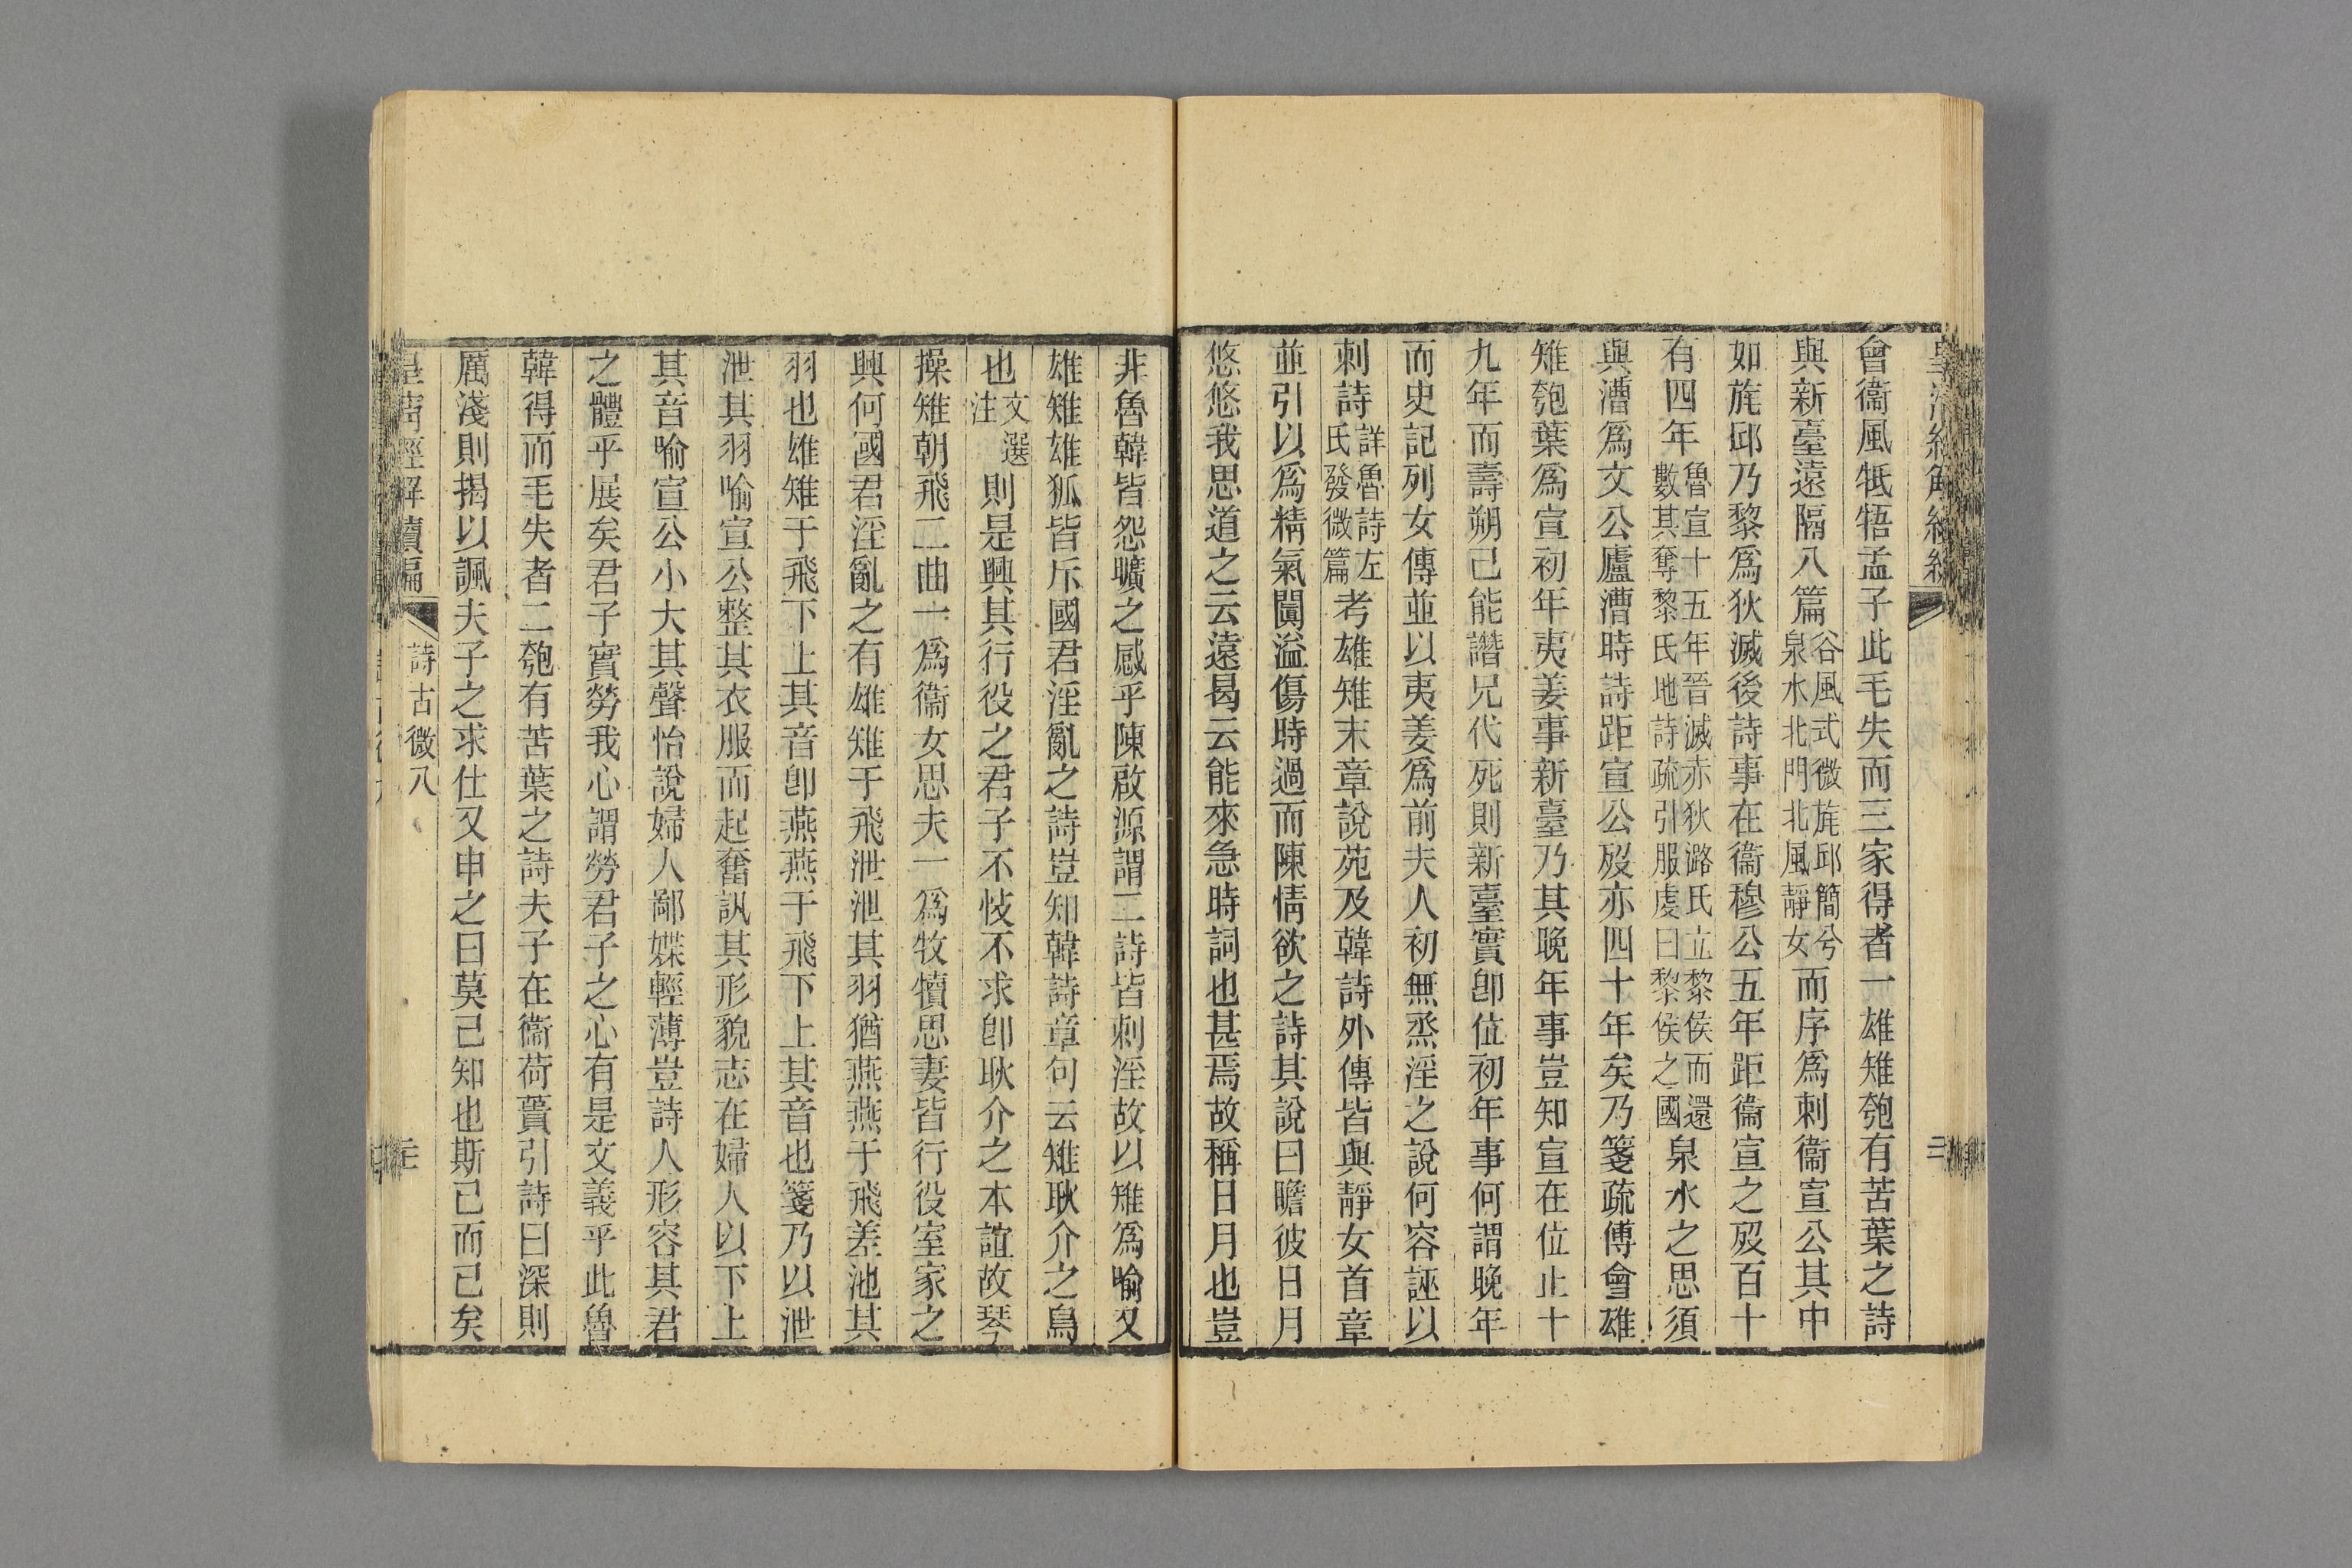 曾衞風牴牾孟子此毛失而三家得者一雄雉匏有苦葉之詩
與新臺遠隔八篇谷風式微旄邱簡兮泉水北門北風靜女而序爲刺衞宣公其中
如旄邱乃黎爲狄滅後詩事在衞穆公五年距衞宣之歿百十
有四年魯宣十五年晉滅赤狄潞氏立黎侯而還數其奪黎氏地詩疏引服虔曰黎侯之國泉水之思須
與漕爲文公廬漕時詩距宣公歿亦四十年矣乃箋疏傅會雄
雉匏葉爲宣初年夷姜事新臺乃其晚年事豈知宣在位止十
九年而壽朔己能譖兄代死則新臺實卽位初年事何謂晚年
而史記列女傳並以夷姜爲前夫人初無烝淫之說何容誣以
刺詩詳魯詩左氏發微篇考雄雉末章說苑及韓詩外傳皆與靜女首章
並引以爲精氣闐溢傷時過而陳情欲之詩其說曰瞻彼日月
悠悠我思道之云遠曷云能來急時詞也甚焉故稱日月也豈
非魯韓皆怨曠之感乎陳啟源謂二詩皆刺淫故以雉爲喻又
雄雉雄狐皆斥國君淫亂之詩豈知韓詩章句云雉耿介之鳥
也文選注則是興其行役之君子不忮不求卽耿介之本誼故琴
操雉朝飛二曲一爲衞女思夫一爲牧犢思妻皆行役室家之
興何國君淫亂之有雄雉于飛泄泄其羽猶燕燕于飛差池其
羽也雄雉于飛下上其音卽燕燕于飛下上其音也箋乃以泄
泄其羽喻宣公整其衣服而起奮訊其形貌志在婦人以下上
其音喻宣公小大其聲怡說婦人鄙媟輕薄豈詩人形容其君
之體乎展矣君子實勞我心謂勞君子之心有是文義乎此魯
韓得而毛失者二匏有苦葉之詩夫子在衞荷蕢引詩曰深則
厲淺則揭以諷夫子之求仕又申之曰莫己知也斯己而已矣
詩古微八